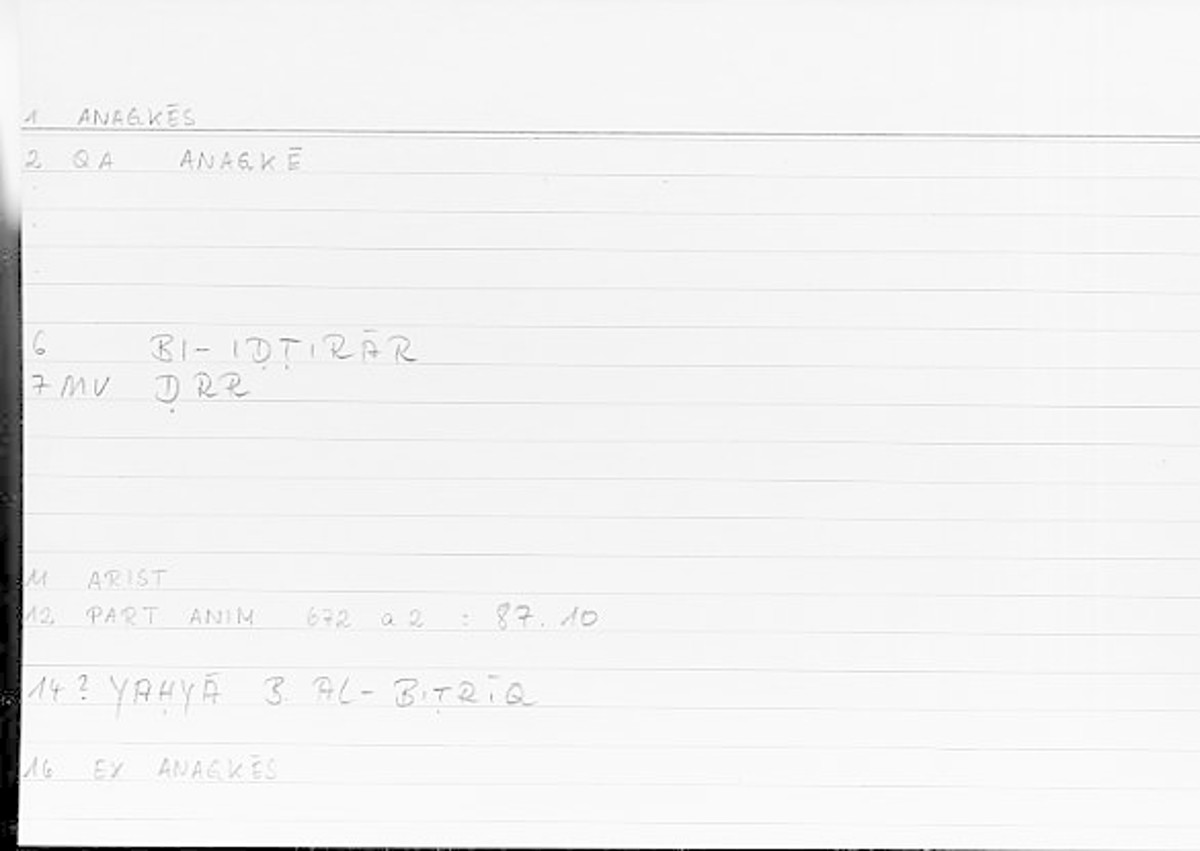 1 ANAGKĒS
2 QA ANAGKĒ
6 BI-IḌṬIRĀR
7 MV ḌRR
11 ARIST
12 PART ANIM 672 a 2 : 87.10
14 ? YAḤYĀ B. AL-BIṬRĪQ
16 EX ANAGKĒS